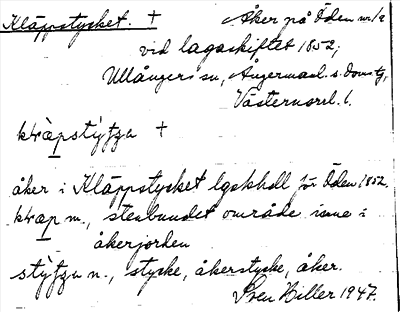 Kläppstycket. † Åker på Öden nr 1/2
vid lagaskiftet 1852;
Ullångers sn, Ångermanl. s. domstg,
Västernorrl. l.
kläpstýʃʒa †
åker i Kläppstycket lgskhdl för Öden 1852.
kläp m., stenbundet område inne i
åkerjorden
stýʃʒa n., stycke, åkerstycke, åker.
Sven Hiller 1947.